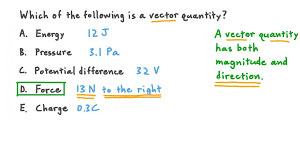 Which of the following is a vector quantity?
A. Energy 12 J
B. Pressure 3.1 Pa
C. Potential difference 32 V
D. Force 13 N to the right
E. Charge 0.3C
A vector quantity
has both
magnitude and
direction.